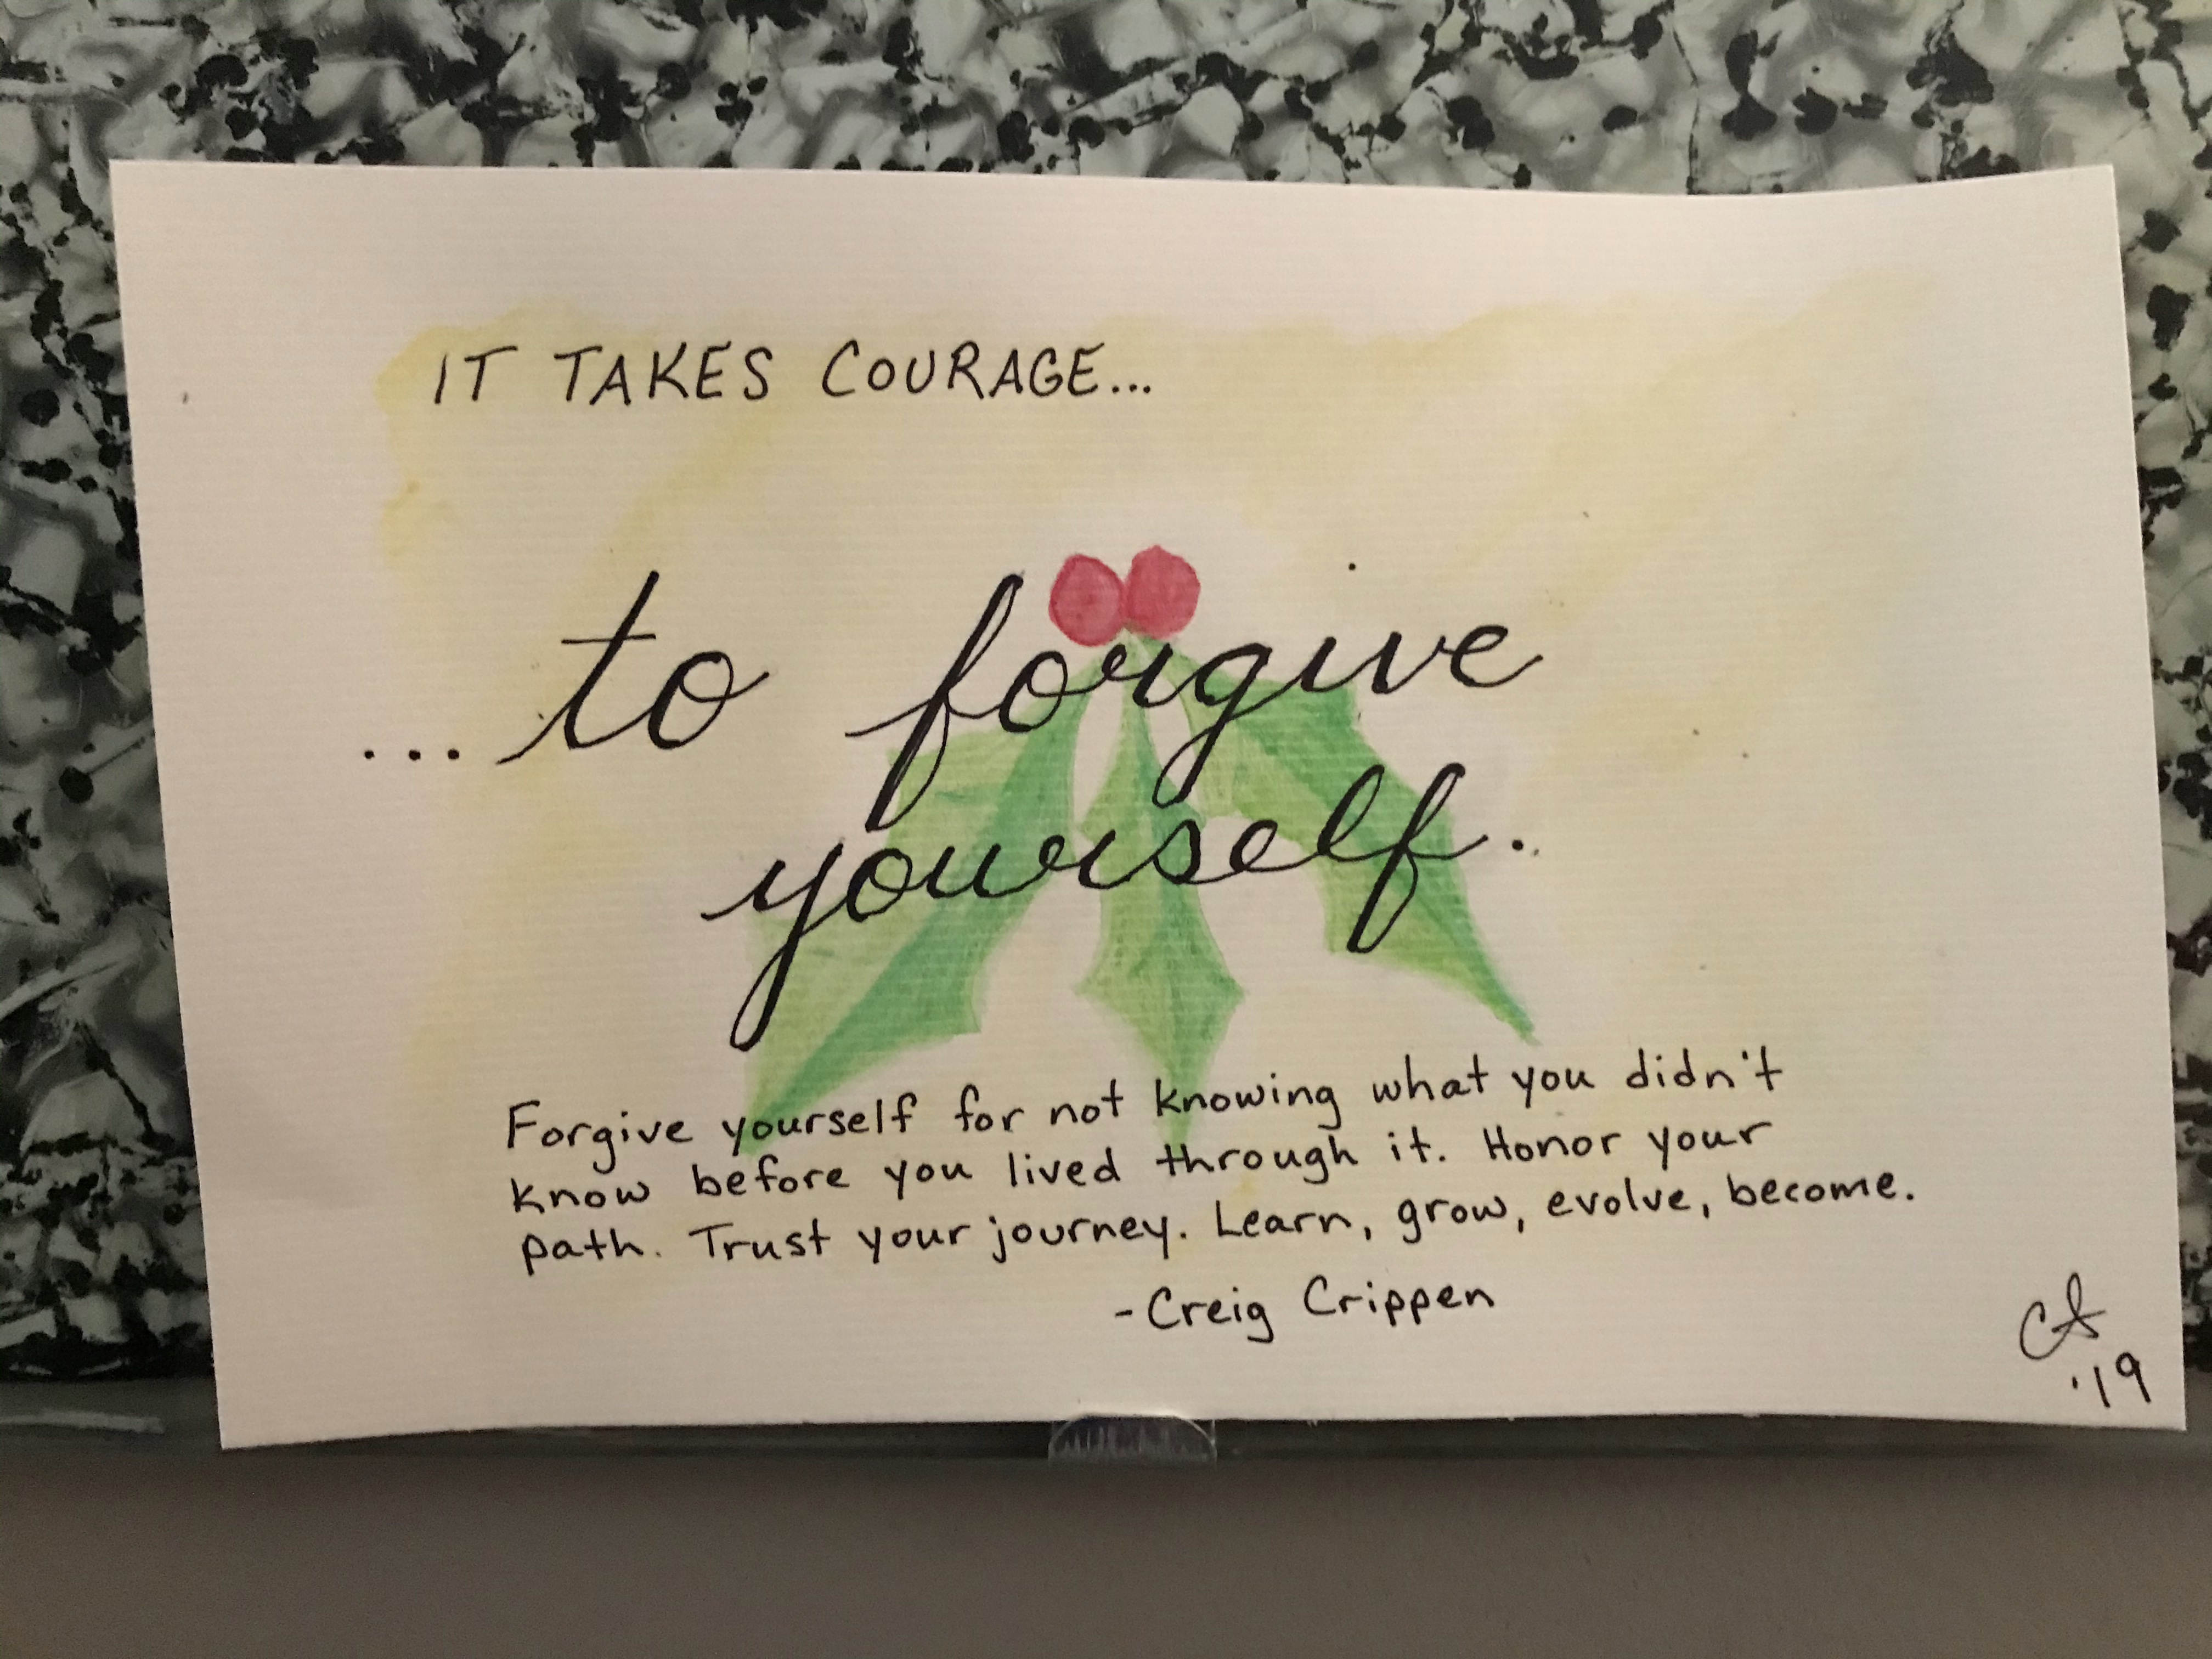 IT TAKES COURAGE...
... to forgive
yourself.
Forgive yourself for not knowing what you didn't
know before you lived through it. Honor your
path. Trust your journey. Learn, grow, evolve, become.
-Creig Crippen
'19